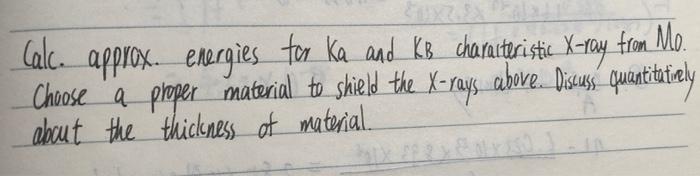 Calc. approx. energies for Ka and KB characteristic X-ray from Mo.
Choose a proper material to shield the X-rays above. Discuss quantitatively
about the thickness of material.